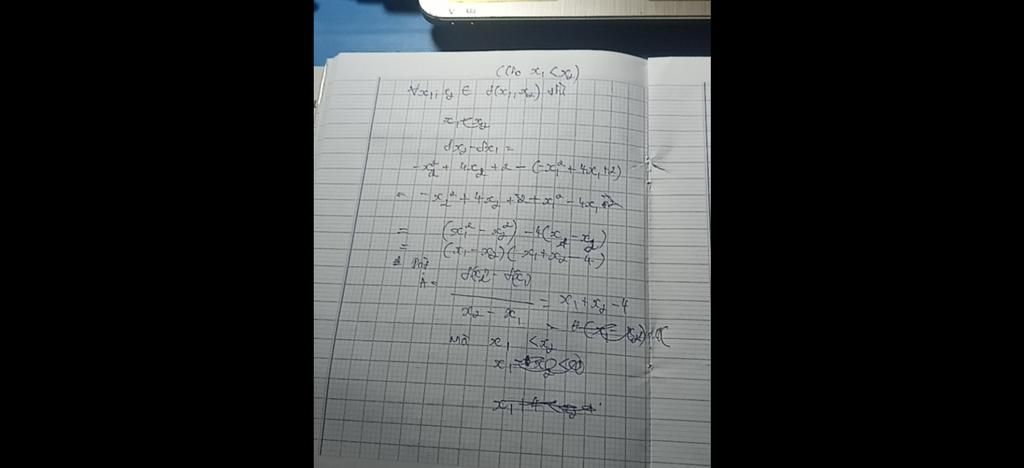 (Cho x₁ < x₂)
∀x₁, x₂ ∈ f(x₁, x₂) thì
x₁ < x₂
fx₂ - fx₁ =
-x₂² + 4x₂ + 2 - (-x₁² + 4x₁ + 2)
= -x₂² + 4x₂ + 2 + x₁² - 4x₁ - 2
= (x₁² - x₂²) - 4(x₁ - x₂)
= (x₁ - x₂)(x₁ + x₂ - 4)
Đặt
A = f(x₂) - f(x₁) / x₂ - x₁ = x₁ + x₂ - 4
Mà x₁ < x₂